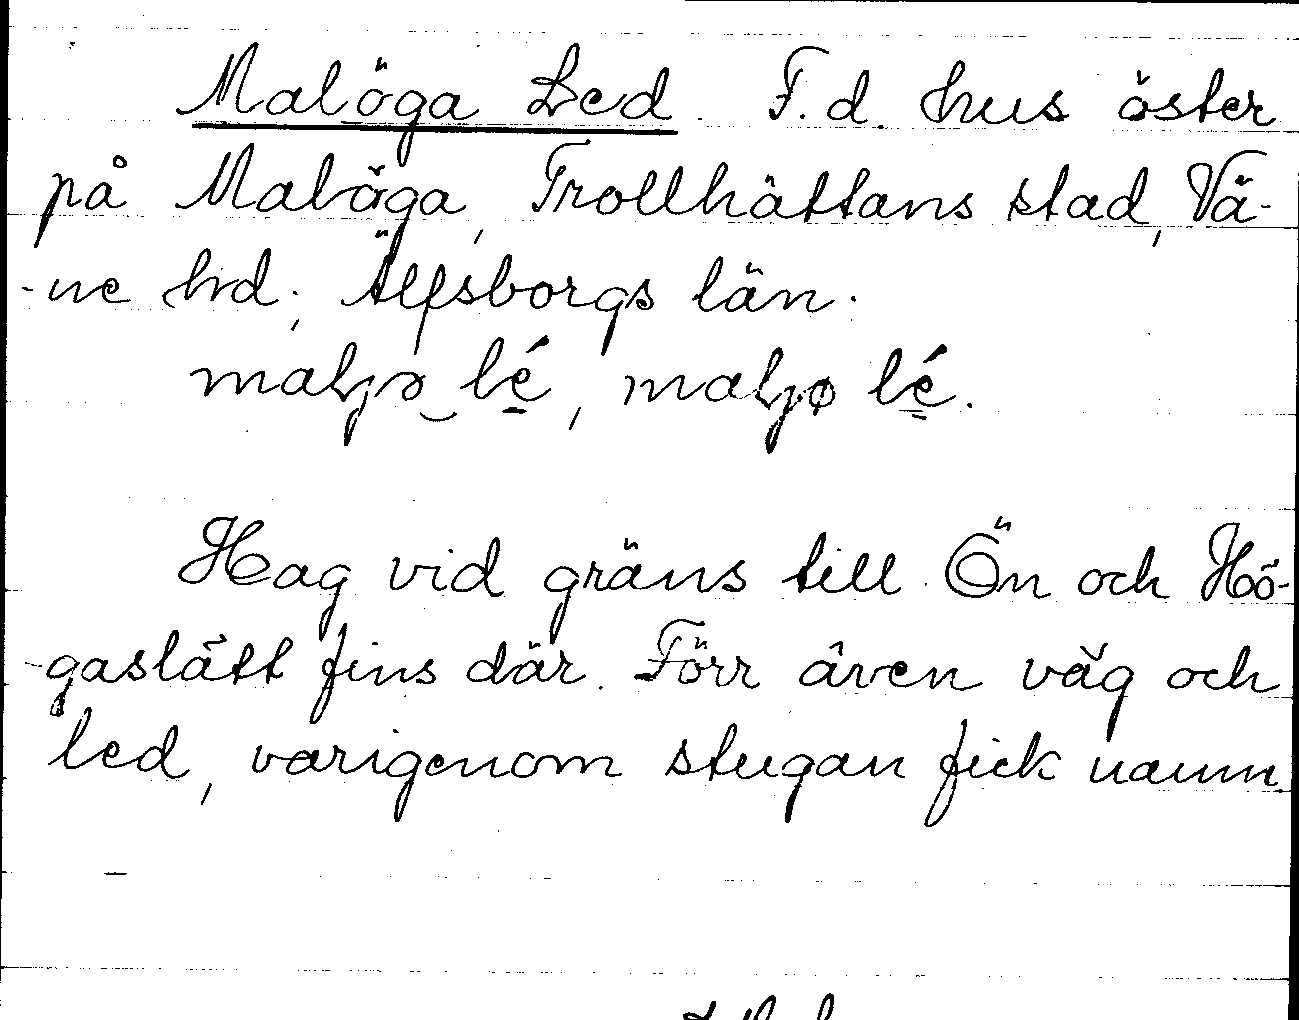 Malöga Led. F.d. hus öster
på Malöga, Trollhättans stad, Vä-
-ne hd, Älfsborgs län.
maljɘ lé, maljø lé.
Hag vid gräns till Ön och Hö-
-gaslätt fins där. Förr även väg och
led, varigenom stugan fick namn.